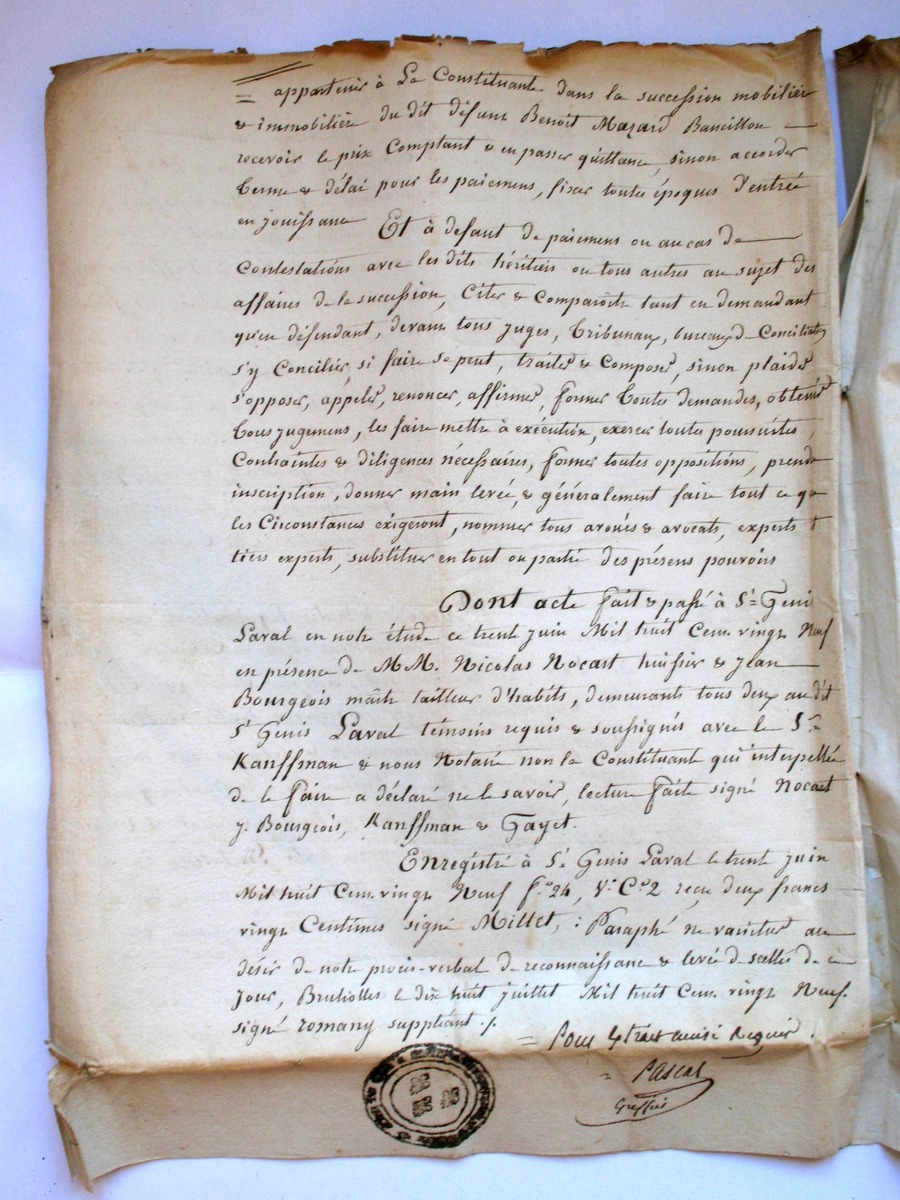 = appartenir à La Constituante dans la succession mobilière
& immobilière du dit défunt Benoit Mazard Bancillon =
recevoir le prix Comptant & en passer quittance, sinon accorder
terme & délai pour les paiemens, fixer toutes époques d'entrée
en jouissance Et à defaut de paiemens ou au cas de
Contestations avec les dits héritiers ou tous autres au sujet des
affaires de la succession, Citer & Comparoître tant en demandant
qu'en défendant, devant tous juges, tribunaux, bureaux d Conciliation
s'y Concilier, si faire se peut, traiter & Composer, sinon plaider
s'opposer, appeler, renoncer, affirmer, former toutes demandes, obtenir
tous jugemens, les faire mettre à exécution, exercer toutes poursuites,
Contraintes & diligences nécessaires, former toutes oppositions, prendre
inscription, donner main levée, & généralement faire tout ce que
les Circonstances exigeront, nommer tous avoués & avocats, experts &
tiers experts, substituer en tout ou partie des présens pouvoirs
Dont acte fait & passé à St Genis
Laval en notre étude ce trente juin Mil huit Cent vingt Neuf
en présence de M.M. Nicolas Nocast huissier & Jean
Bourgeois maître tailleur d'habits, demeurants tous deux au dit
St Genis Laval témoins requis & soussignés avec le Sr
Kanffman & nous Notaire non la Constituant qui interpellée
de le faire a déclaré ne le savoir, lecture faite signé Nocast
J. Bourgeois, Kanffman & Gayet.
Enregistré à St Genis Laval le trente juin
Mil huit Cent vingt Neuf fo 24, Vo Ce 2 reçu deux francs
vingt Centimes signé Millet, : Paraphé ne varietur au
désir de notre procès-verbal de reconnaissance & levée de scellés de ce
jour, Brullioles le dix huit juillet Mil huit Cent vingt Neuf.
signé romany suppléant ./.
= Pour Extrait
= Pascal
Greffier